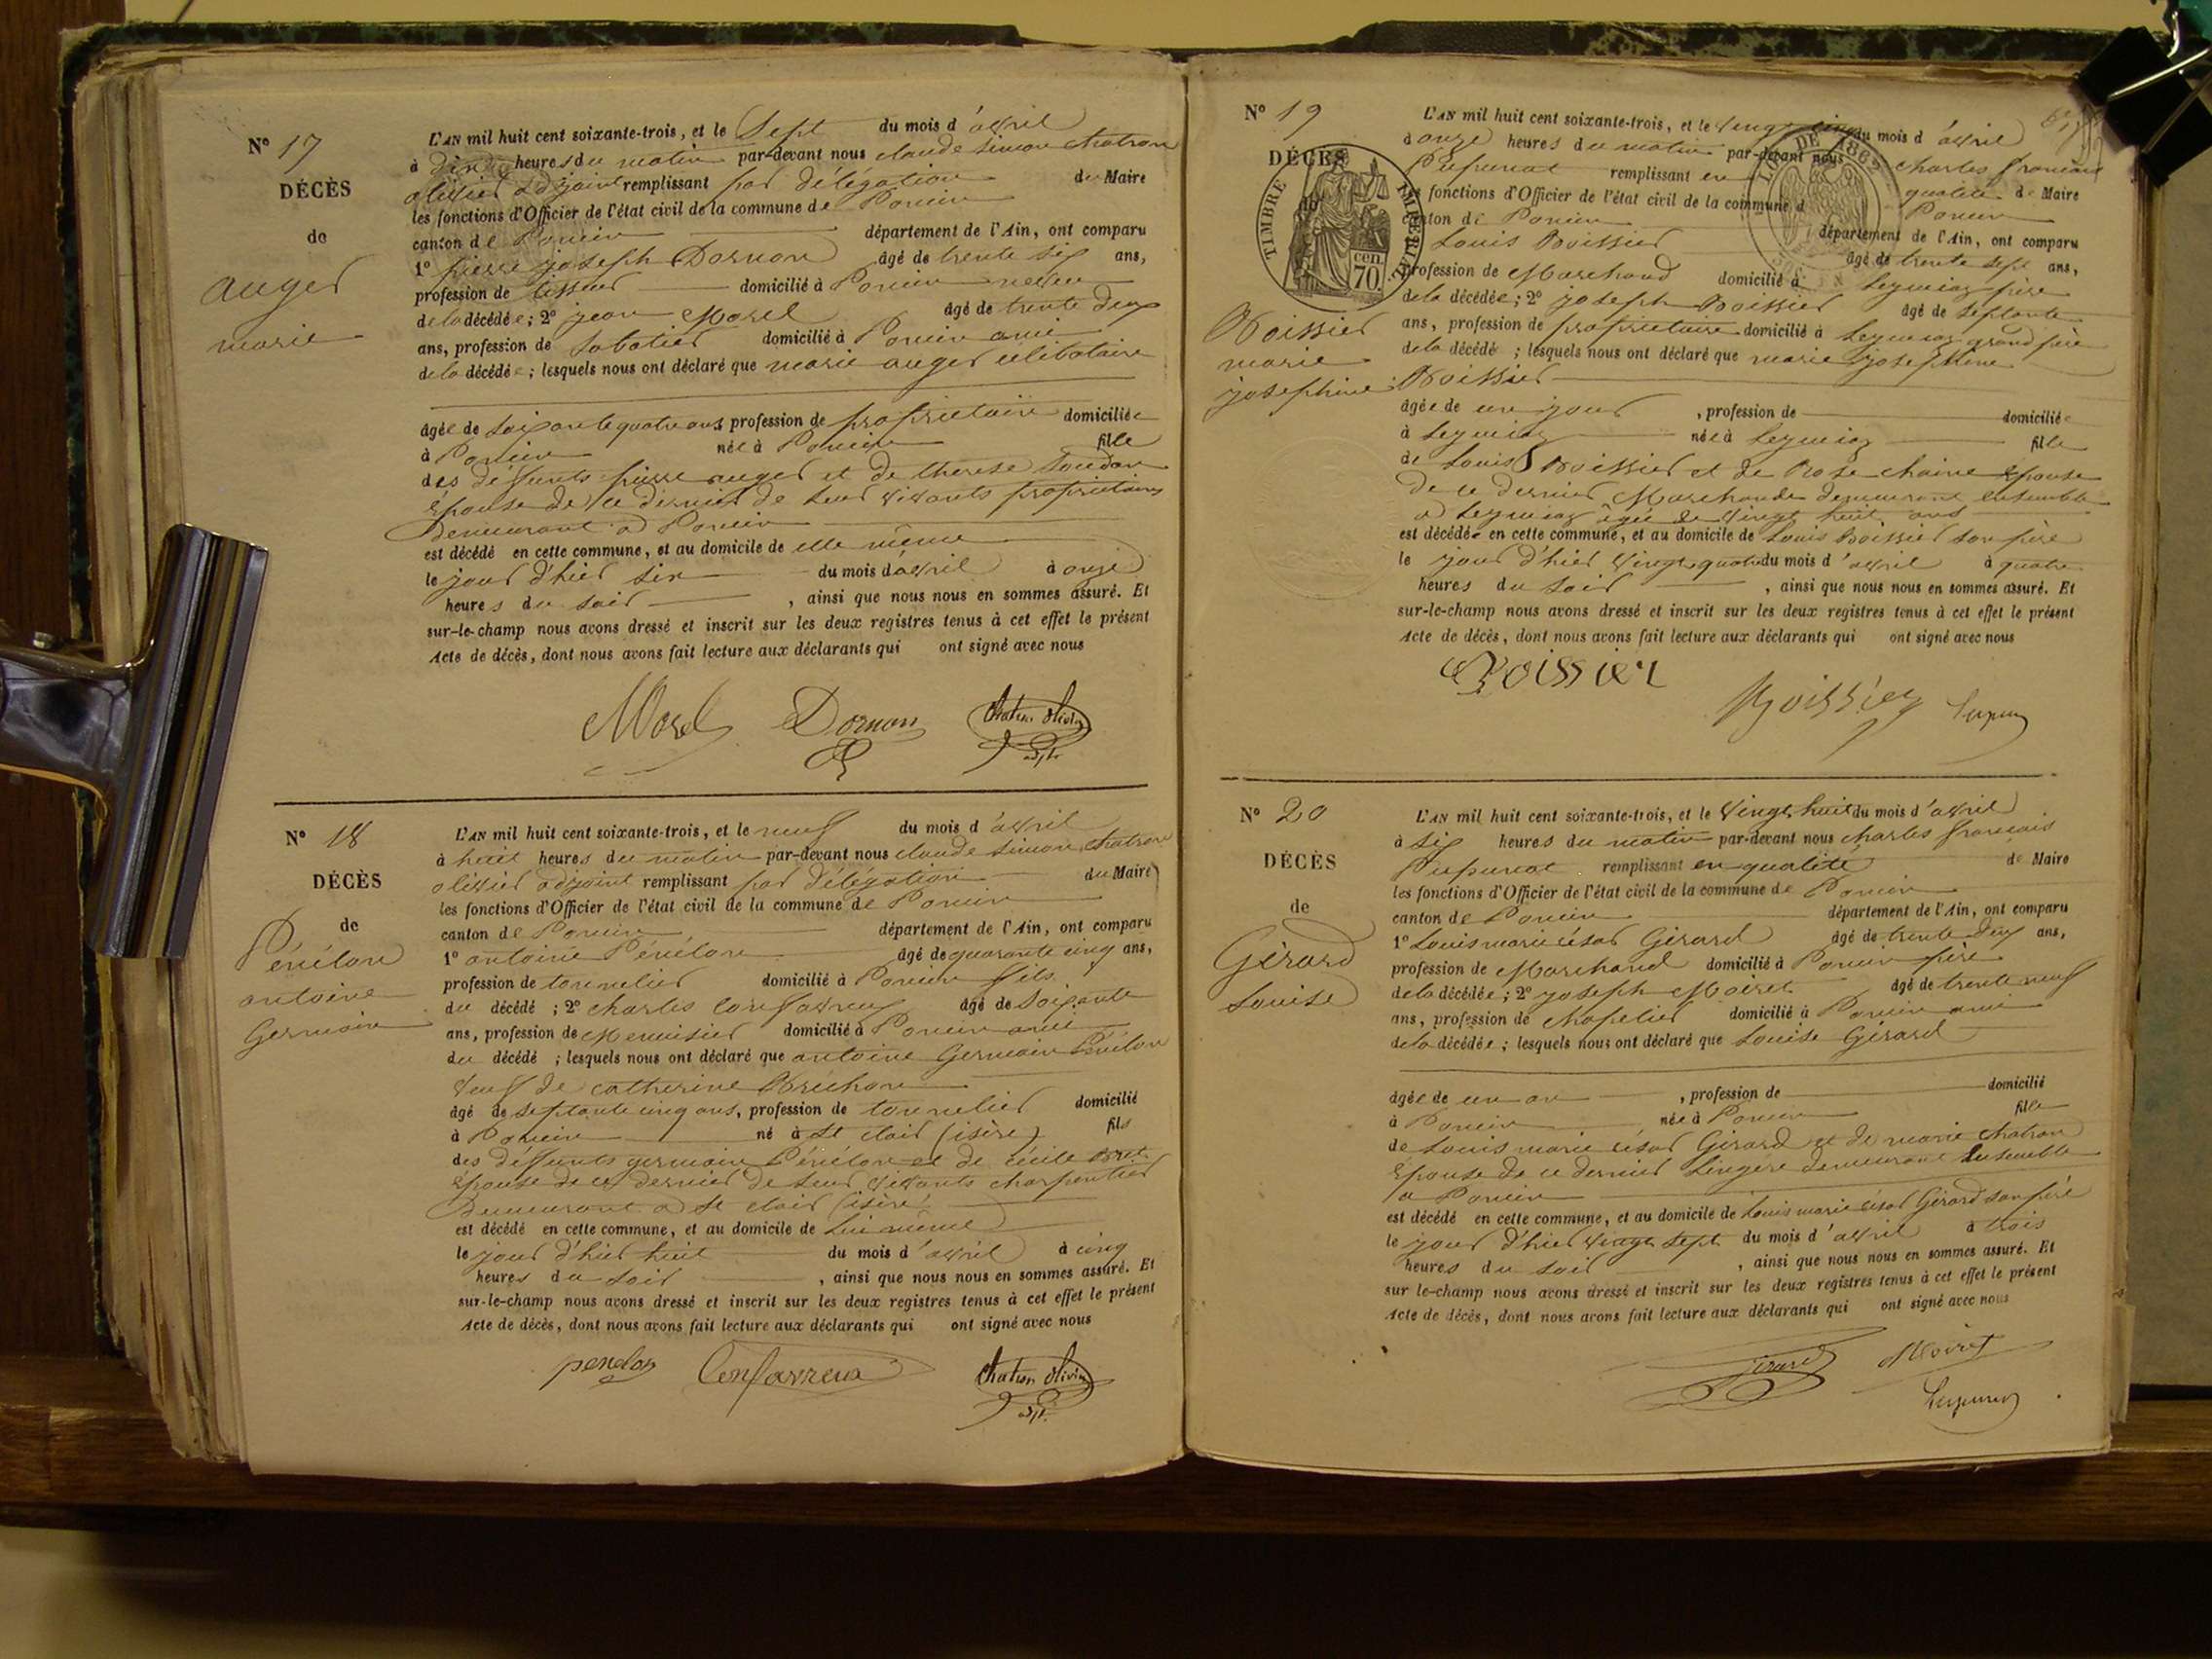 N° 17
DÉCÈS
de
auger
marie
L'AN mil huit cent soixante-trois, et le Sept du mois d'avril
à dix heures du matin par-devant nous claude simon chatron
olivier adjoint remplissant par délégation du Maire
les fonctions d'Officier de l'état civil de la commune de Poncin
canton de Poncin département de l'Ain, ont comparu
1° pierre joseph Dornon âgé de trente six ans,
profession de tisseur domicilié à Poncin neveu
de la décédée; 2° jean Morel âgé de trente deux
ans, profession de Sabotier domicilié à Poncin ami
de la décédée; lesquels nous ont déclaré que marie auger célibataire
âgée de soixante quatre ans, profession de propriétaire domiciliée
à Poncin née à Poncin fille
des deffunts pierre auger et de therese
épouse de ce dernier de leur vivants propriétaires
demeurant à Poncin
est décédé en cette commune, et au domicile de elle même
le jour d'hier six du mois d'avril à onze
heures du soir, ainsi que nous nous en sommes assuré. Et
sur-le-champ nous avons dressé et inscrit sur les deux registres tenus à cet effet le présent
Acte de décès, dont nous avons fait lecture aux déclarants qui ont signé avec nous
Morel Dornon Chatron Olivier
adjt
N° 18
DÉCÈS
de
Pénélon
antoine
Germain
L'AN mil huit cent soixante-trois, et le neuf du mois d'avril
à huit heures du matin par-devant nous claude simon chatron
olivier adjoint remplissant par délégation du Maire
les fonctions d'Officier de l'état civil de la commune de Poncin
canton de Poncin département de l'Ain, ont comparu
1° antoine Pénélon âgé de quarante cinq ans,
profession de tonnelier domicilié à Poncin fils
du décédé; 2° charles Confavreux âgé de soixante
ans, profession de Menuisier domicilié à Poncin ami
du décédé; lesquels nous ont déclaré que antoine Germain Pénélon
veuf de catherine Bréchon
âgé de septante cinq ans, profession de tonnelier domicilié
à Poncin né à St clair (isère) fils
des deffunts germain Pénélon et de cécile Bret
épouse de ce dernier de leur vivants charpentier
demeurant à St clair (isère)
est décédé en cette commune, et au domicile de lui même
le jour d'hier huit du mois d'avril à cinq
heures du soir, ainsi que nous nous en sommes assuré. Et
sur-le-champ nous avons dressé et inscrit sur les deux registres tenus à cet effet le présent
Acte de décès, dont nous avons fait lecture aux déclarants qui ont signé avec nous
penelon Confavreux Chatron Olivier
adjt
N° 19
DÉCÈS
TIMBRE IMPÉRIAL
70 cen.
LOI DE 1862
Boissier
marie
josephine
L'AN mil huit cent soixante-trois, et le vingt cinq du mois d'avril
à onze heures du matin par-devant nous Charles françois
Pupunat remplissant en qualité de Maire
les fonctions d'Officier de l'état civil de la commune d Poncin
canton de Poncin département de l'Ain, ont comparu
Louis Boissier âgé de trente sept ans,
profession de Marchand domicilié à Leymiaz père
de la décédée; 2° joseph Boissier âgé de septante
ans, profession de propriétaire domicilié à Leymiaz grand père
de la décédé; lesquels nous ont déclaré que marie josephine
Boissier
âgée de un jour, profession de domiciliée
à Leymiaz née à Leymiaz fille
de Louis Boissier et de Rose chaine épouse
de ce dernier Marchande demeurant ensemble
à Leymiaz âgée de vingt huit ans
est décédée en cette commune, et au domicile de Louis Boissier son père
le jour d'hier vingt quatre du mois d'avril à quatre
heures du soir, ainsi que nous nous en sommes assuré. Et
sur-le-champ nous avons dressé et inscrit sur les deux registres tenus à cet effet le présent
Acte de décès, dont nous avons fait lecture aux déclarants qui ont signé avec nous
Boissier Boissier
N° 20
DÉCÈS
de
Gérard
Louise
L'AN mil huit cent soixante-trois, et le vingt huit du mois d'avril
à six heures du matin par-devant nous charles françois
Pupunat remplissant en qualité de Maire
les fonctions d'Officier de l'état civil de la commune de Poncin
canton de Poncin département de l'Ain, ont comparu
1° Louis marie césar Gérard âgé de trente deux ans,
profession de Marchand domicilié à Poncin père
de la décédée; 2° joseph Moiret âgé de trente neuf
ans, profession de chapelier domicilié à Poncin ami
de la décédée; lesquels nous ont déclaré que Louise Gérard
âgée de un an, profession de domicilié
à Poncin née à Poncin fille
de Louis marie césar Gérard et de marie chatron
épouse de ce dernier Lingère demeurant ensemble
à Poncin
est décédé en cette commune, et au domicile de Louis marie césar Gérard son père
le jour d'hier vingt sept du mois d'avril à trois
heures du soir, ainsi que nous nous en sommes assuré. Et
sur le-champ nous avons dressé et inscrit sur les deux registres tenus à cet effet le présent
Acte de décès, dont nous avons fait lecture aux déclarants qui ont signé avec nous
Gérard Moiret